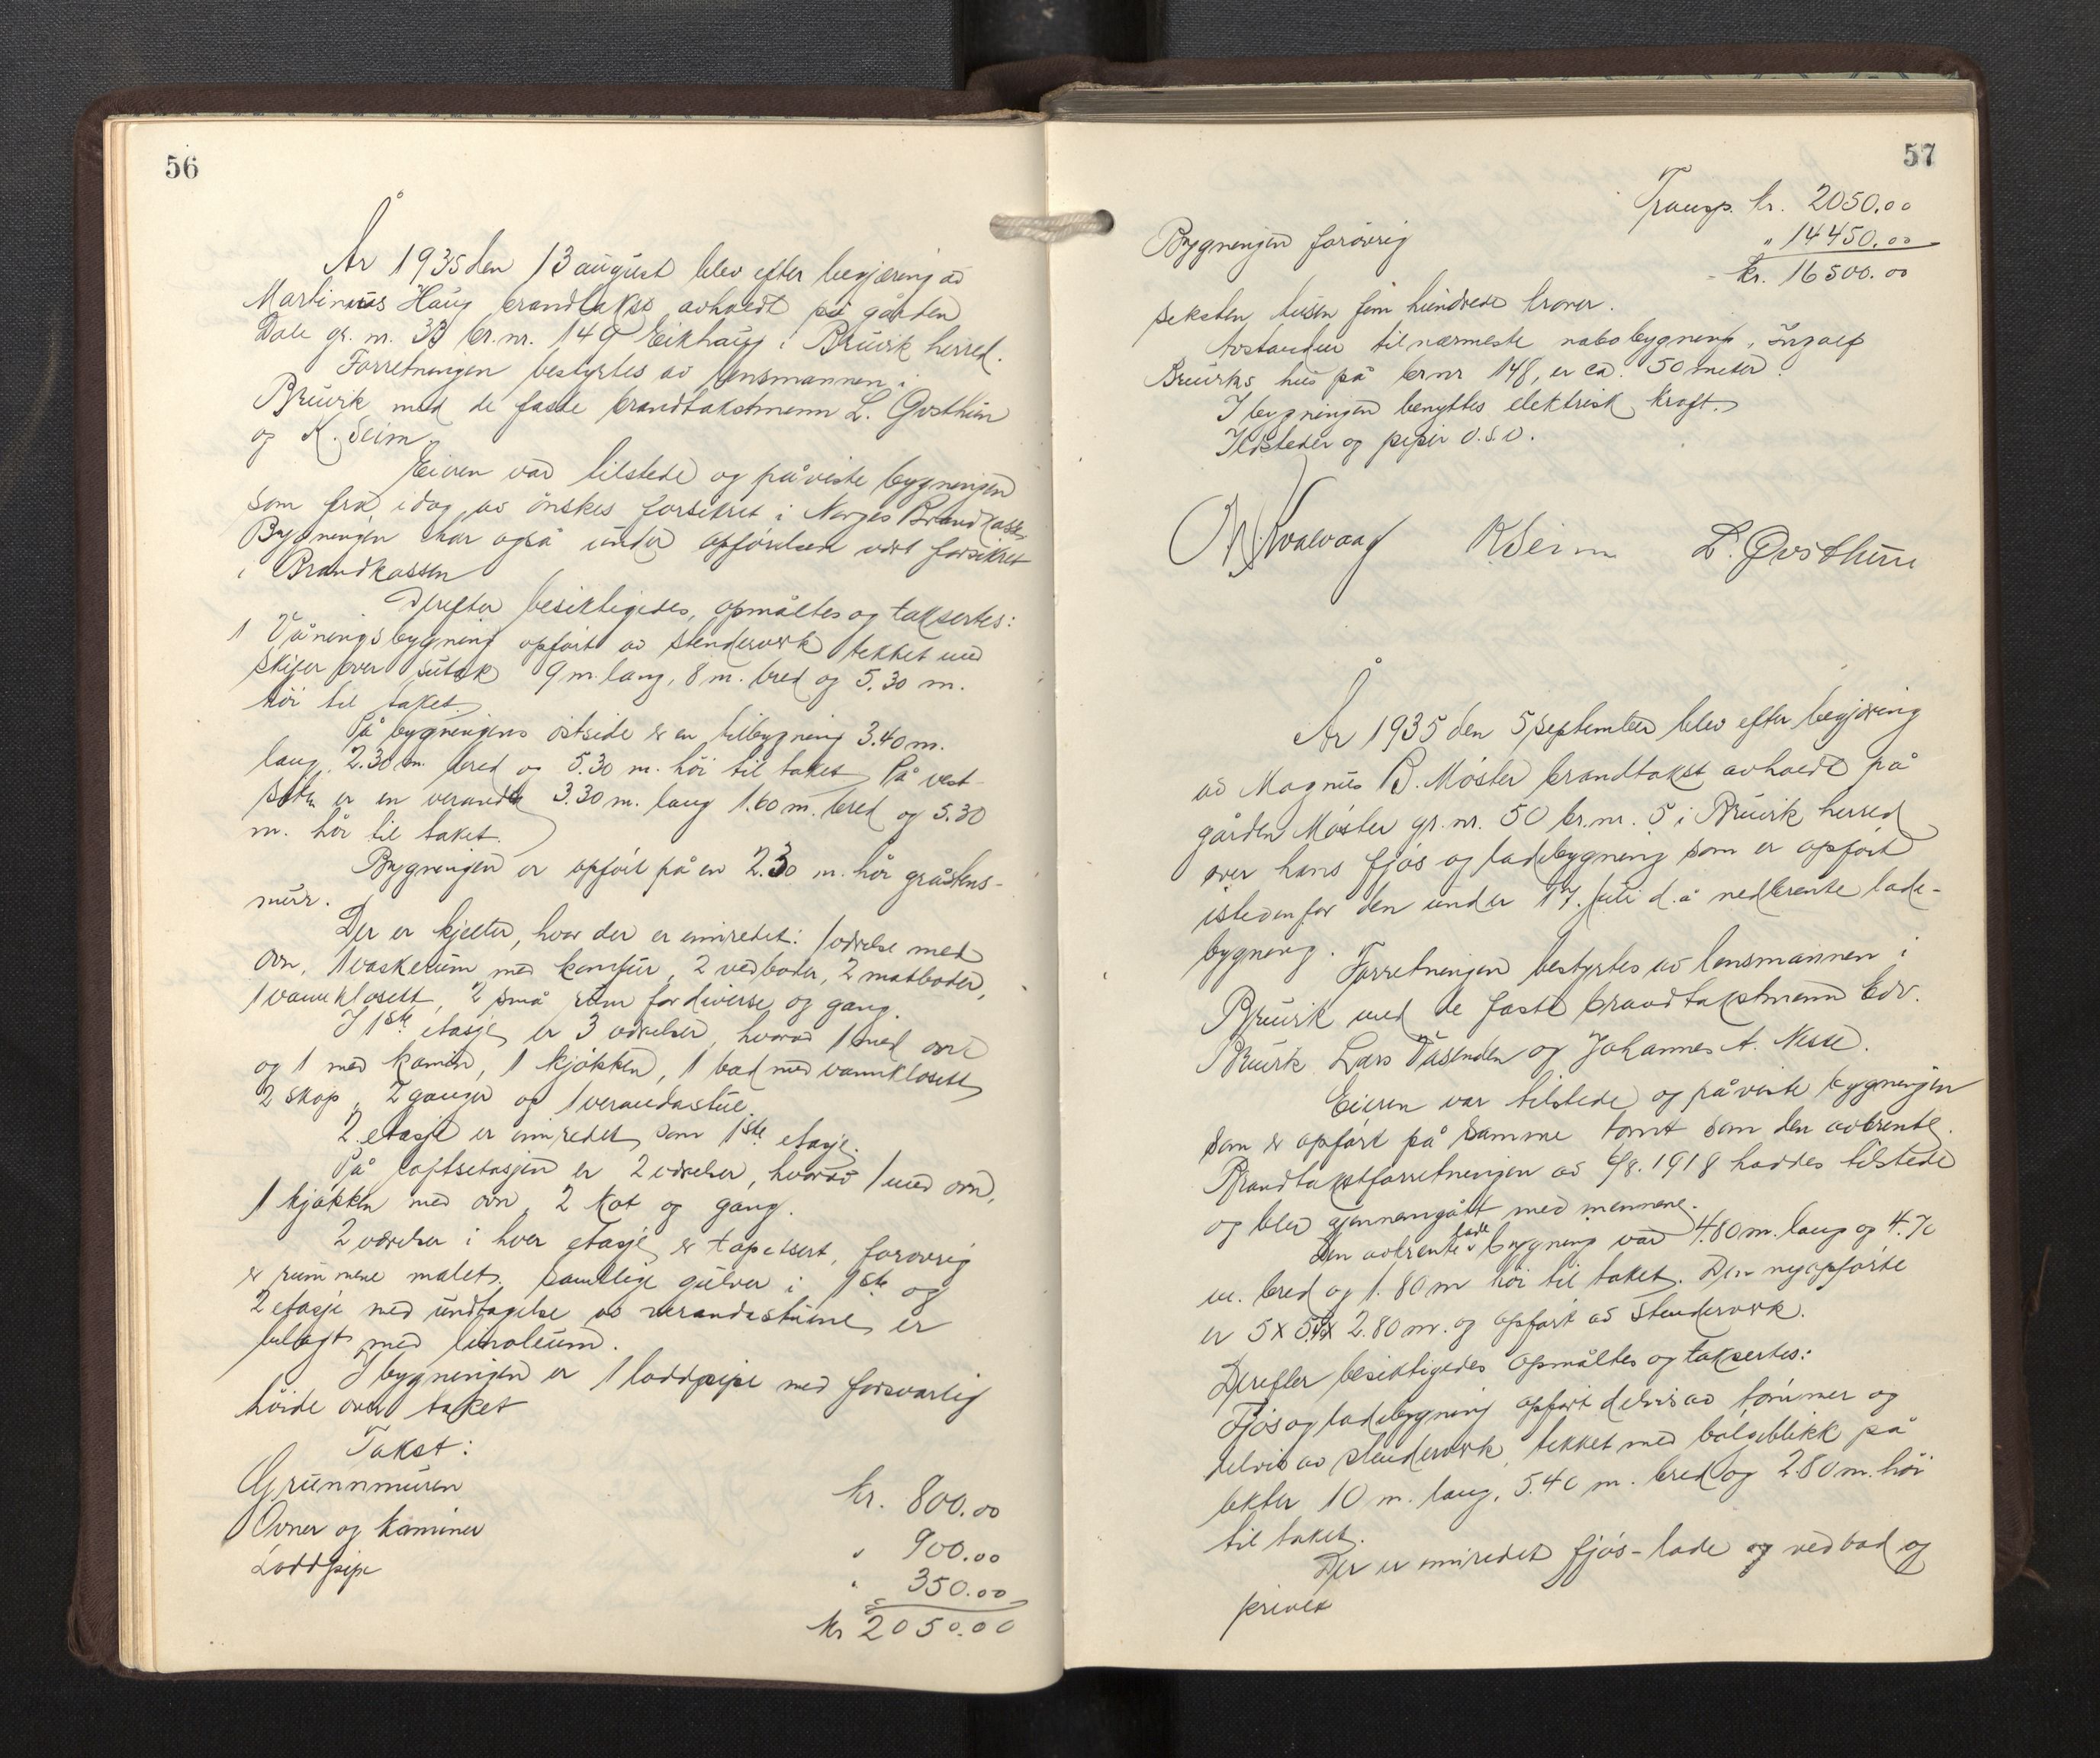 56
År 1935 den 13 august blev efter begjæring av
Martinius Haug brandtakst avholdt på gården
Dale gr. nr. 33 br. nr. 149 Eikhaug i Bruvik herred.
Forretningen bestyrtes av lensmannen i
Bruvik med de faste brandtakstmenn L. Øvsthun
og K. Seim.
Eieren var tilstede og påviste bygningen
som fra idag av ønskes forsikret i Norges Brandkasse
Bygningen har også under opførelsen vært forsikret
i Brandkassen
Derefter besiktigedes, opmåltes og taksertes:
1 Våningsbygning opført av stenderverk tekket med
skifer over sutak 9 m. lang, 8 m. bred og 5.30 m.
høi til taket.
På bygningens østside er en tilbygning 3.40 m.
lang, 2.30 m. bred og 5.30 m. høi til taket. På vest-
siden er en veranda 3.30 m. lang 1.60 m. bred og 5.30
m. høi til taket.
Bygningen er opført på en 2.30 m. høi gråstens-
mur.
Der er kjelder, hvor der er innredet: 1 værelse med
ovn, 1 vaskerum med komfur, 2 vedboder, 2 matboder,
1 vannklosett, 2 små rum for diverse og gang.
I 1ste etasje er 3 værelser, hvorav 1 med ovn
og 1 med kamin, 1 kjøkken, 1 bad med vannklosett
2 skap, 2 ganger og 1 verandastue.
2. etasje er innredet som 1ste etasje.
På loftsetasjen er 2 værelser, hvorav 1 med ovn,
1 kjøkken med ovn, 2 kot og gang.
2 værelser i hver etasje er tapetsert, forøvrig
er rummene malet. Samtlige gulver i 1ste og
2 etasje med undtagelse av verandastuene er
belagt med linoleum.
I bygningen er 1 loddpipe med forsvarlig
høide over taket
Takst:
Grunnmuren kr. 800.00
Ovner og kaminer " 900.00
Loddpipe " 350.00
kr 2050.00
57
Transp. kr. 2050.00
Bygningen forøvrig " 14450.00
kr. 16500.00
seksten tusen fem hundrede kroner.
Avstanden til nærmeste nabobygning, Ingolf
Bruviks hus på br nr 148, er ca. 50 meter.
I bygningen benyttes elektrisk kraft.
Ildsteder og piper o.s.v.
Kvalvaag K Seim L. Øvsthun
År 1935 den 5 september blev efter begjæring
av Magnus B. Møster brandtakst avholdt på
gården Møster gr. nr. 50 br. nr. 5 i Bruvik herred
over hans fjøs og ladebygning som er opført
istedenfor den under 17. juli d.å nedbrente lade-
bygning.
Forretningen bestyrtes av lensmannen i
Bruvik med de faste brandtakstmenn Edv.
Bruvik Lars Vasenden og Johannes A. Nesse.
Eieren var tilstede og påviste bygningen
som er opført på samme tomt som den avbrente.
Brandtakstforretningen av 6/8. 1918 haddes tilstede
og blev gjennemgått med mennene.
Den avbrente lade bygning var 4.80 m. lang og 4.70
m. bred og 1.80 m høi til taket. Den nyopførte
er 5 x 5.40 x 2.80 m. og opført av stenderverk.
Derefter besiktigedes opmåltes og taksertes:
Fjøs og ladebygning opført delvis av tømmer og
delvis av stenderverk, tekket med bølgeblikk på
lekter 10 m. lang, 5.40 m. bred og 2.80 m. høi
til taket.
Der er innredet fjøs-lade og vedbod og
privet